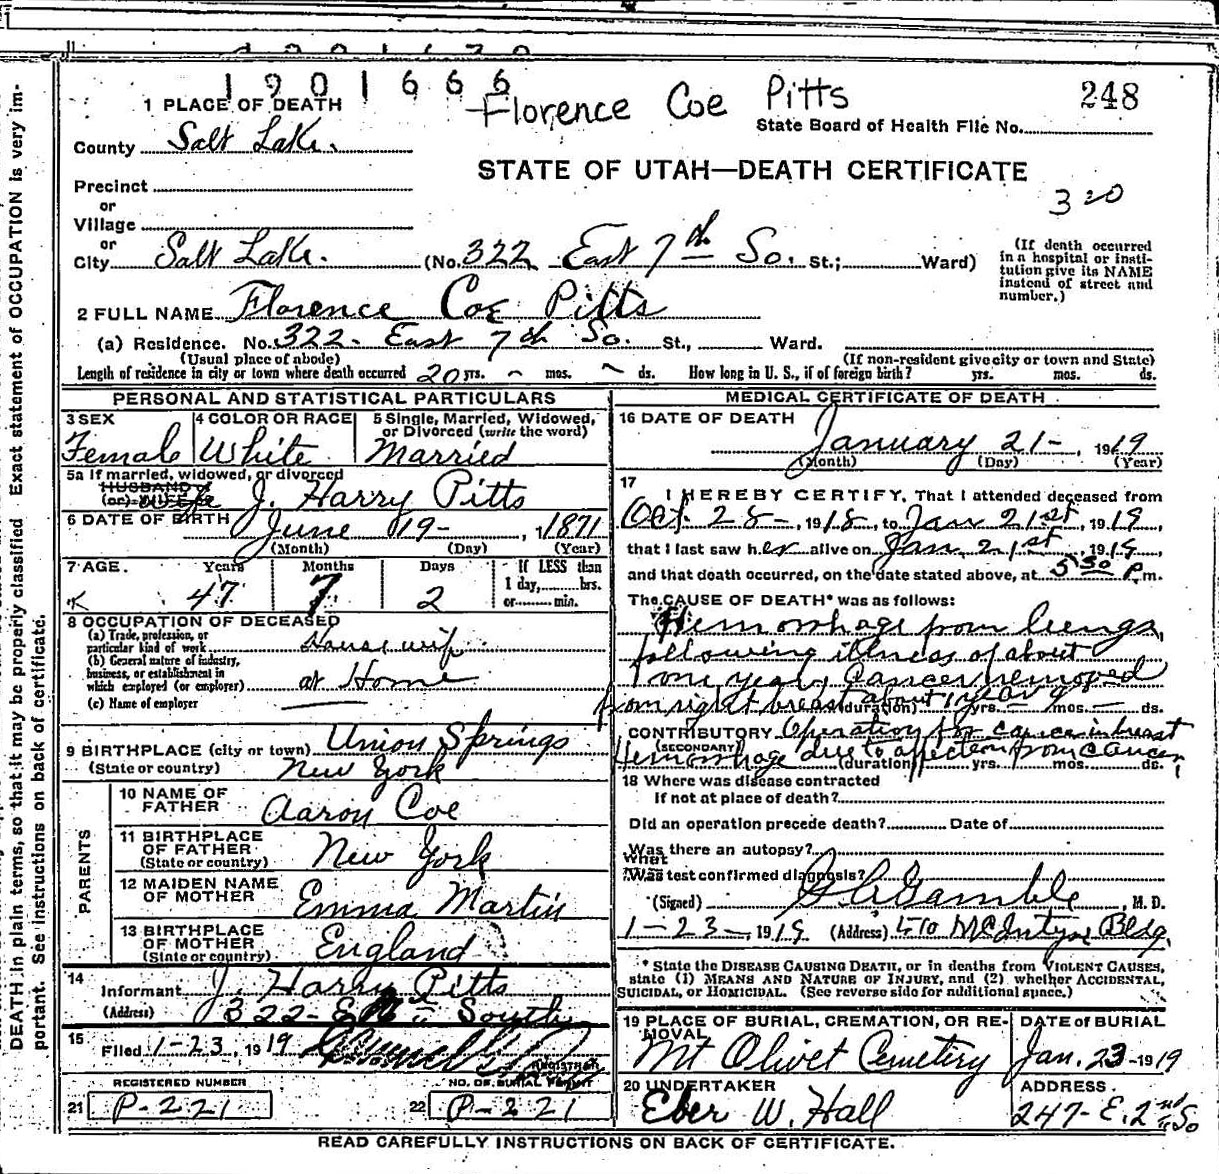 1901666
Florence Coe Pitts
248
State Board of Health File No.
STATE OF UTAH—DEATH CERTIFICATE
320
1 PLACE OF DEATH
County Salt Lake.
Precinct
or
Village
or
City Salt Lake. (No. 322 East 7th So. St.; Ward)
(If death occurred in a hospital or institution give its NAME instead of street and number.)
2 FULL NAME Florence Coe Pitts
(a) Residence. No. 322 East 7th So. St., Ward.
(Usual place of abode) (If non-resident give city or town and State)
Length of residence in city or town where death occurred 20 yrs. mos. ds. How long in U. S., if of foreign birth? yrs. mos. ds.
PERSONAL AND STATISTICAL PARTICULARS
3 SEX
Female
4 COLOR OR RACE
White
5 Single, Married, Widowed, or Divorced (write the word)
Married
5a If married, widowed, or divorced
HUSBAND of
(or) WIFE of J. Harry Pitts
6 DATE OF BIRTH June 19- , 1871
(Month) (Day) (Year)
7 AGE. Years Months Days If LESS than
1 day, hrs.
or min.
47 7 2
8 OCCUPATION OF DECEASED
(a) Trade, profession, or
particular kind of work Housewife
(b) General nature of industry,
business, or establishment in
which employed (or employer) at Home
(c) Name of employer
9 BIRTHPLACE (city or town) Union Springs
(State or country) New York
PARENTS
10 NAME OF FATHER Aaron Coe
11 BIRTHPLACE OF FATHER (State or country) New York
12 MAIDEN NAME OF MOTHER Emma Martin
13 BIRTHPLACE OF MOTHER (State or country) England
14 Informant J. Harry Pitts
(Address) 322 E South
15 Filed 1-23, 1919
REGISTRAR
REGISTERED NUMBER
21 P-221
NO. OF BURIAL PERMIT
22 P-221
MEDICAL CERTIFICATE OF DEATH
16 DATE OF DEATH
January 21- , 1919
(Month) (Day) (Year)
17
I HEREBY CERTIFY, That I attended deceased from
Oct. 28-, 1918, to Jan 21st, 1919,
that I last saw her alive on Jan 21st, 1919,
and that death occurred, on the date stated above, at 5 30 P.m.
The CAUSE OF DEATH* was as follows:
Hemorrhage from lungs,
following illness of about
one year, Cancer removed
from right breast about 1 year
(duration) yrs. mos. ds.
CONTRIBUTORY Operation for cancer in breast
(SECONDARY)
Hemorrhage due to affection from cancer
(duration) yrs. mos. ds.
18 Where was disease contracted
If not at place of death?
Did an operation precede death? Date of
Was there an autopsy?
What
Was test confirmed diagnosis?
(Signed) Gamble, M. D.
1-23-, 1919 (Address) 410 McIntyre Bldg.
* State the DISEASE CAUSING DEATH, or in deaths from VIOLENT CAUSES, state (1) MEANS AND NATURE OF INJURY, and (2) whether ACCIDENTAL, SUICIDAL, or HOMICIDAL. (See reverse side for additional space.)
19 PLACE OF BURIAL, CREMATION, OR REMOVAL
Mt Olivet Cemetery
DATE of BURIAL
Jan. 23-1919
20 UNDERTAKER
Eber W. Hall
ADDRESS.
247-E. 2nd So
READ CAREFULLY INSTRUCTIONS ON BACK OF CERTIFICATE.
DEATH in plain terms, so that it may be properly classified Exact statement of OCCUPATION is very im-
portant. See instructions on back of certificate.